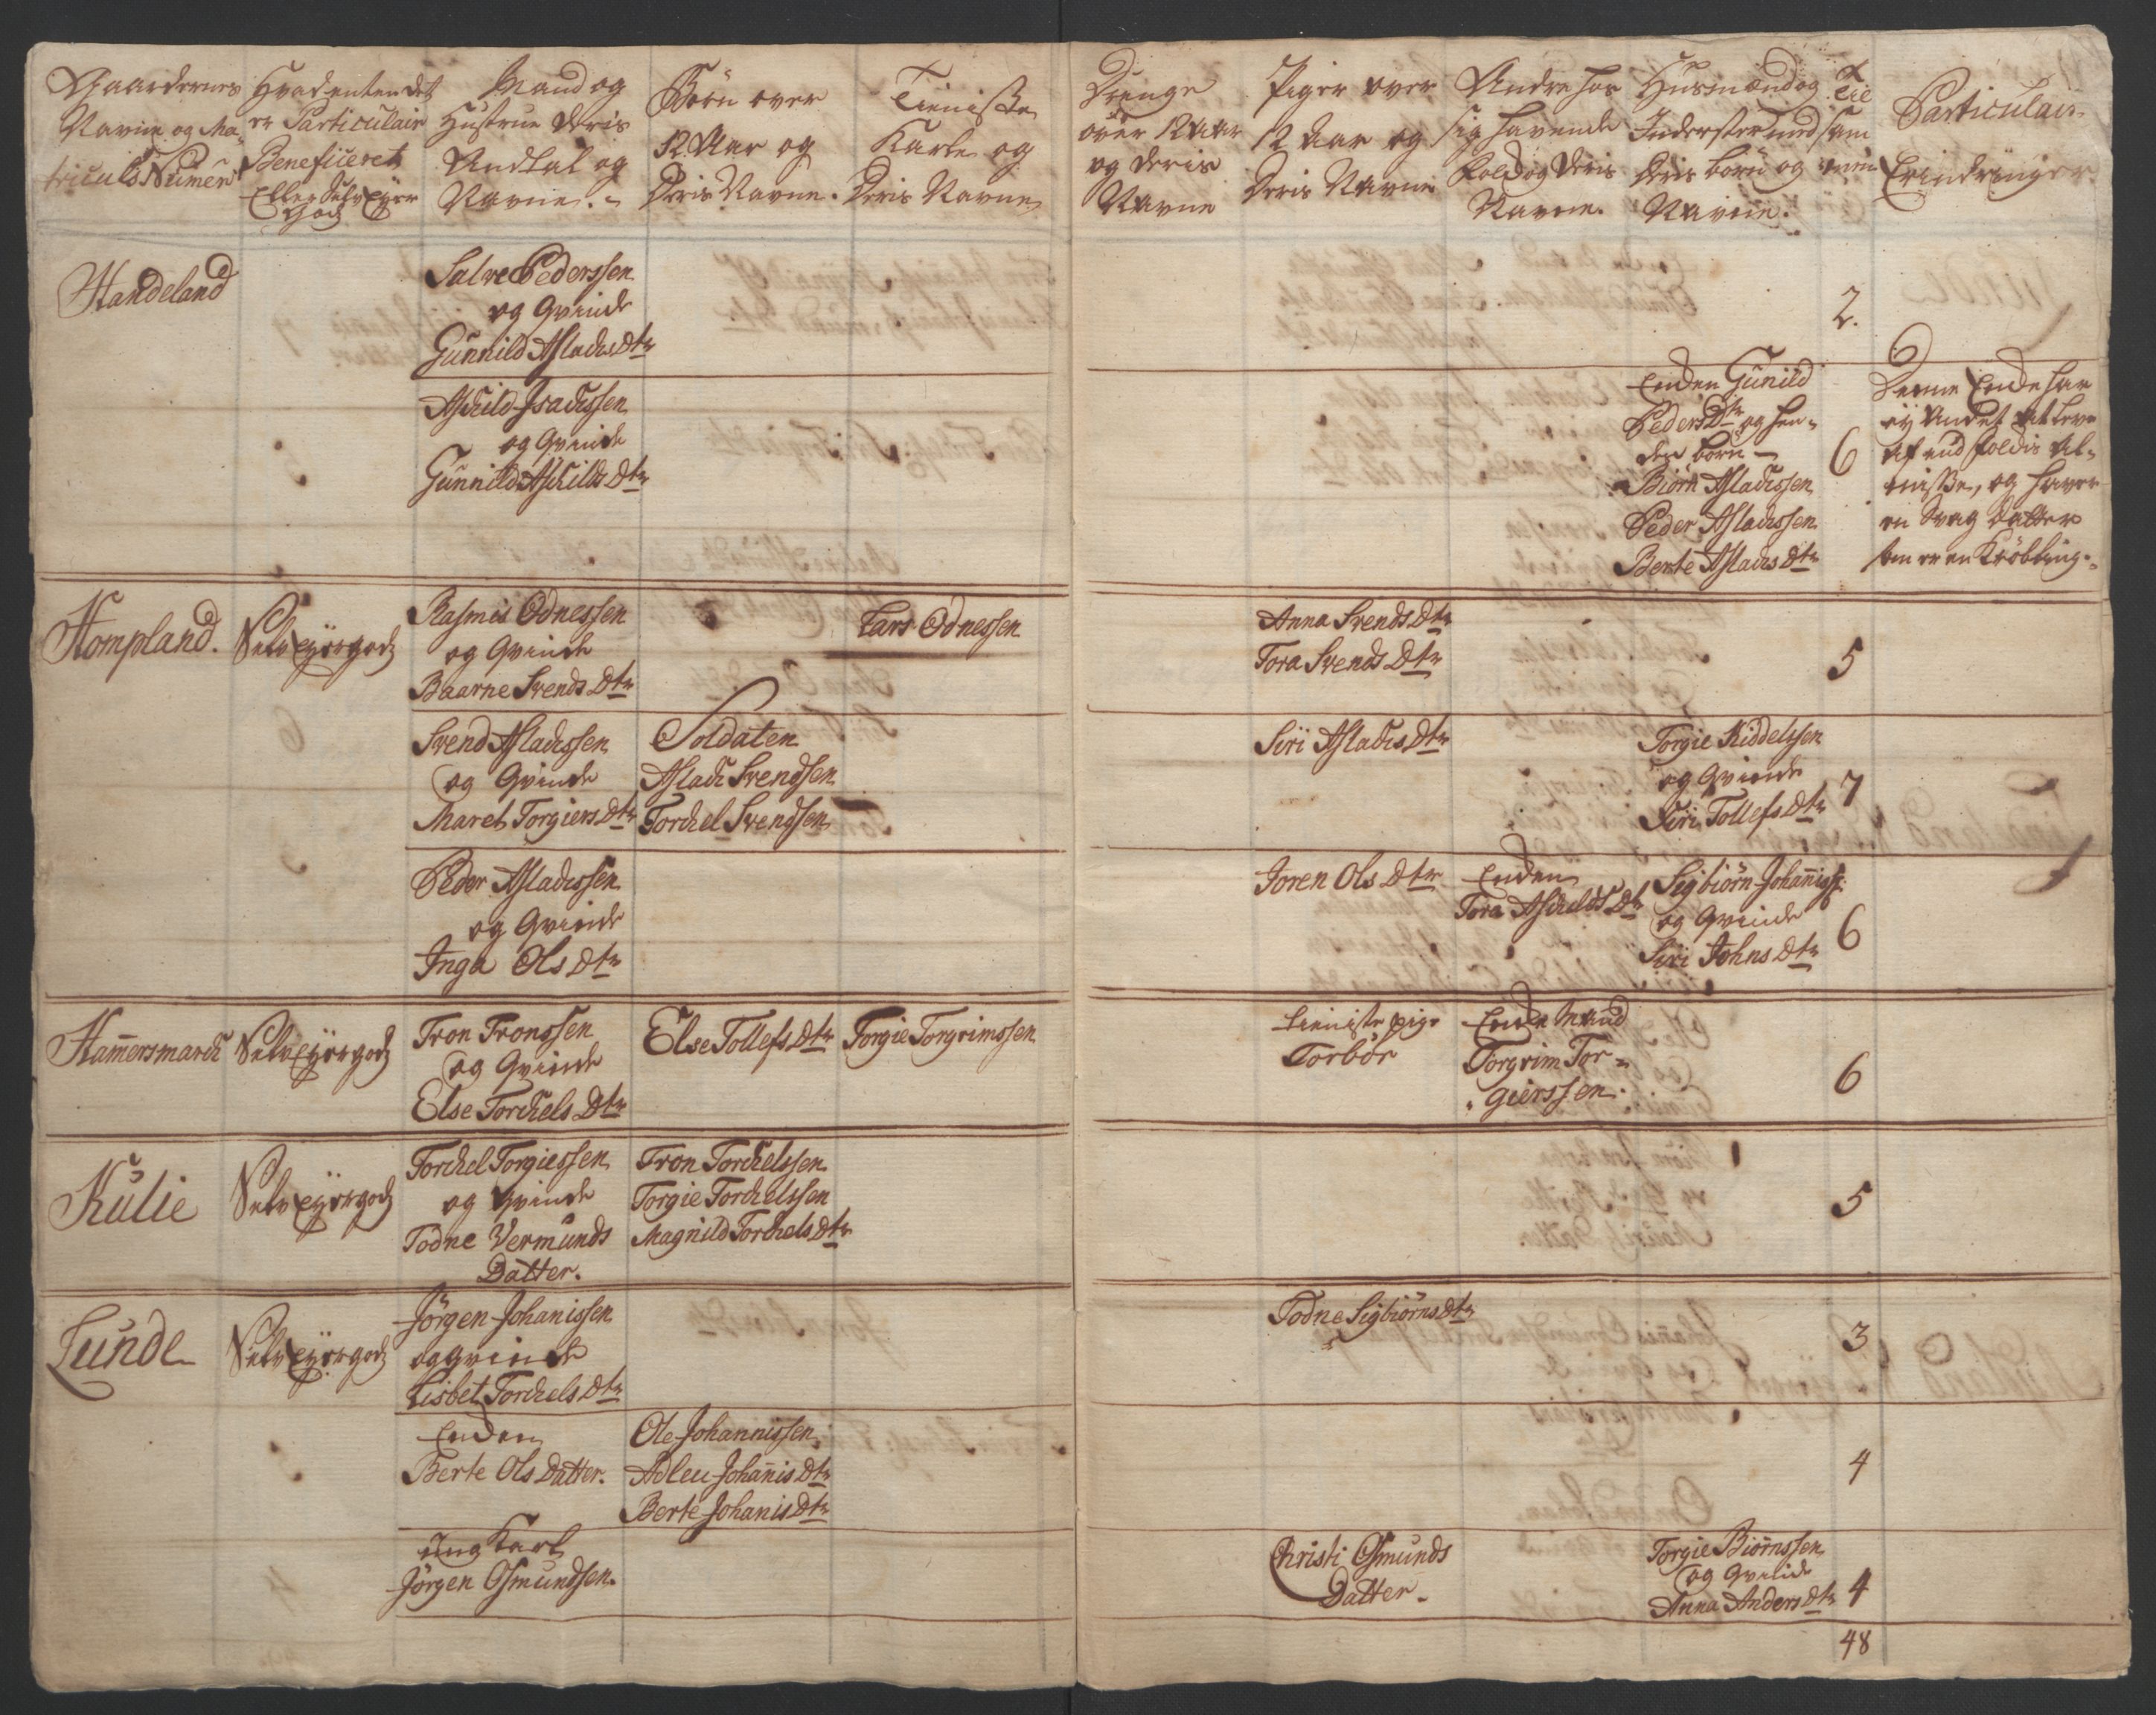 Gaardernes
Navne og Ma-
triculs Numer
Hvad enten det
er Particulair
Beneficeret
Eller Selv Eyer
Gods
Mand og
Hustrue deris
Andtal og
Navne.
Börn over
12 Aar og
Deris Navne.
Tieniste
Karle og
Deris Navne
Drenge
over 12 Aar
og deris
Navne
Piger over
12 Aar og
Deris Navne
Andre hos
sig havende
folk og deris
Navne.
Husmænd og
Inderster med
deris börn og
Navne.
Til
sam
men
Particulair
Erindringer.
Handeland
Salve Pederssen
og Qvinde
Gunnild Aslachs Dtr
2.
Aschild Isachssen
og Qvinde
Gunnild Aschilds Dtr
Enchen Gunild
Peders Dtr og hen-
des börn
Biörn Aslachssen
Peder Aslachssen
Berte Aslachs Dtr
6
Denne Enche har
ej Andet at leve
af end folchis Al-
misse, og haver
en Svag datter
som er en Kröbling.
Hompland.
Selv Eyergods
Rasmis Odnessen
og Qvinde
Baarne Svends Dtr
Lars Odnessen
Anna Svends Dtr
Tora Svends Dtr
5
Svend Aslachssen
og Qvinde
Maret Torgiers Dtr
Soldaten
Aslach Svendsen
Torchel Svendsen
Siri Aslachs Dtr
Torgie Kiddelssen
og Qvinde
Siri Tollefs Dtr
7
Peder Aslachssen
og Qvinde
Inga Ols Dtr
Joren Ols Dtr
Enchen
Tora Aschelds Dtr
Sigbiörn Johannis S:
og Qvinde
Siri Johns Dtr
6
Hammersmarch
Selv Eyergods
Tron Tronssen
og Qvinde
Else Torchels Dtr
Else Tollefs Dtr
Torgie Torgrimssen
tieniste pige
Torbör
Enche Mand
Torgrim Tor-
gierssen.
6
Kulie
Selv Eyergods
Torchel Torgiessen
og Qvinde
Todne Vermunds
Datter.
Tron Torchelssen
Torgie Torchelssen
Magnild Torchels Dtr
5
Lunde
Selv Eyergods
Jörgen Johanissen
og Qvinde
Lisbet Torchels Dtr
Todne Sigbiörns Dtr
3
Enchen
Berte Ols Datter.
Ole Johannissen
Adleu Johannis Dtr
Berte Johanis Dtr
4
ung Karl
Jörgen Osmundsen.
Christi Osmunds
Datter.
Torgie Biörnssen
og Qvinde
Anna Anders Dtr
4
48